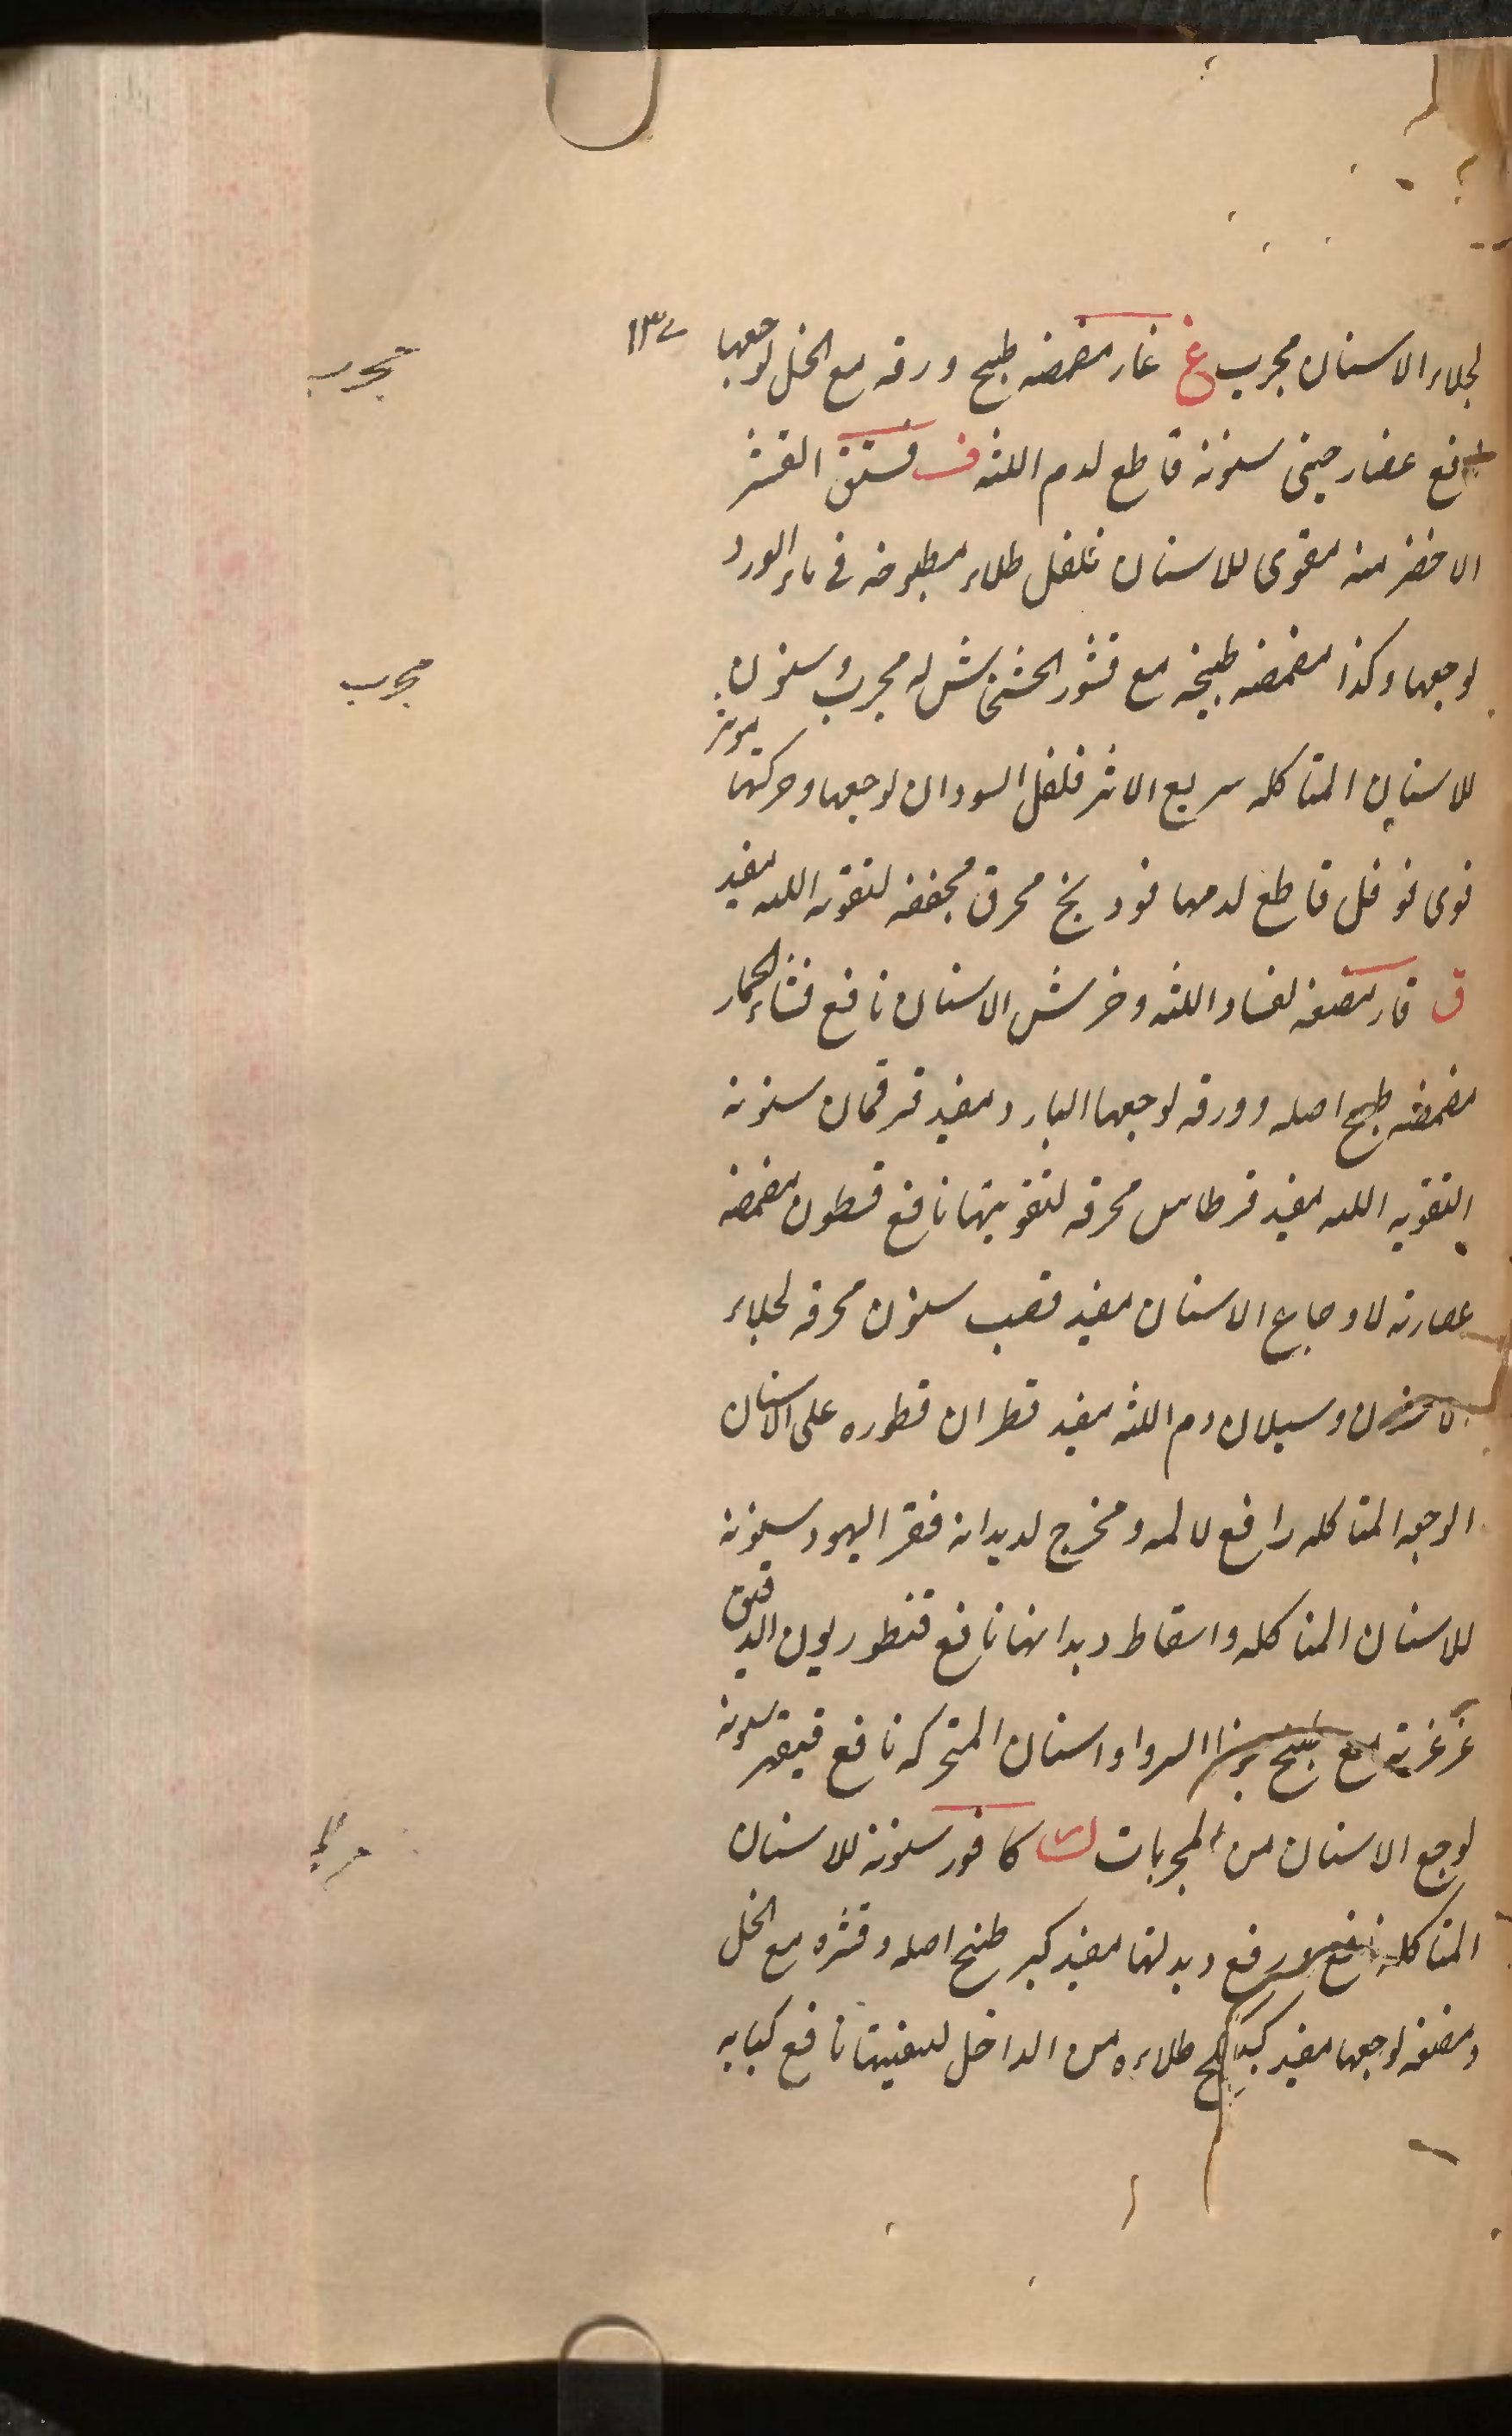 ١٣٧
لجلاء الاسنان مجرب غ غار مضمضه طبيخ ورقه مع الخل لوجعها
مجرب
نافع غضار صيني سنونه قاطع لدم اللثه ف فستق القشر
الاخضر منه مقوى للاسنان فلفل طلاء مطبوخه في ماء الورد
لوجعها وكذا مضمضه طبيخه مع قشور الخشخاش له مجرب وسنون
مجرب
للاسنان المتاكله سريع الاثر فلفل السودان لوجعها وحركتها
نوى فوفل قاطع لدمها فودنج محرق مجففه لتقويه اللثه مفيد
ق قار مضغه لفساد اللثه وضرس الاسنان نافع قثاء الحمار
مضمضه طبيخ اصله وورقه لوجعها البارد مفيد قرقمان سنونه
لتقويه اللثه مفيد قرطاس محرقه لتقويتها نافع قسطون مضمضه
عصارته لاوجاع الاسنان مفيد قصب سنون محرقه لجلاء
الاسنان وسيلان دم اللثه مفيد قطران قطوره على الاسنان
الوجعه المتاكله رافع لالمه ومخرج لديدانه قفر اليهود سنونه
للاسنان المتاكله واسقاط ديدانها نافع قنطوريون الدقيق
غرغرته مع طبيخ الدواء واسنان المتحركه نافع سنونه
لوجع الاسنان من المجربات ك كافور سنونه للاسنان
المتاكله نافع ورفع ديدانها مفيد كبر طبيخ اصله وقشره مع الخل
ومضغه لوجعها مفيد طلاءه من الداخل نافع كبابه